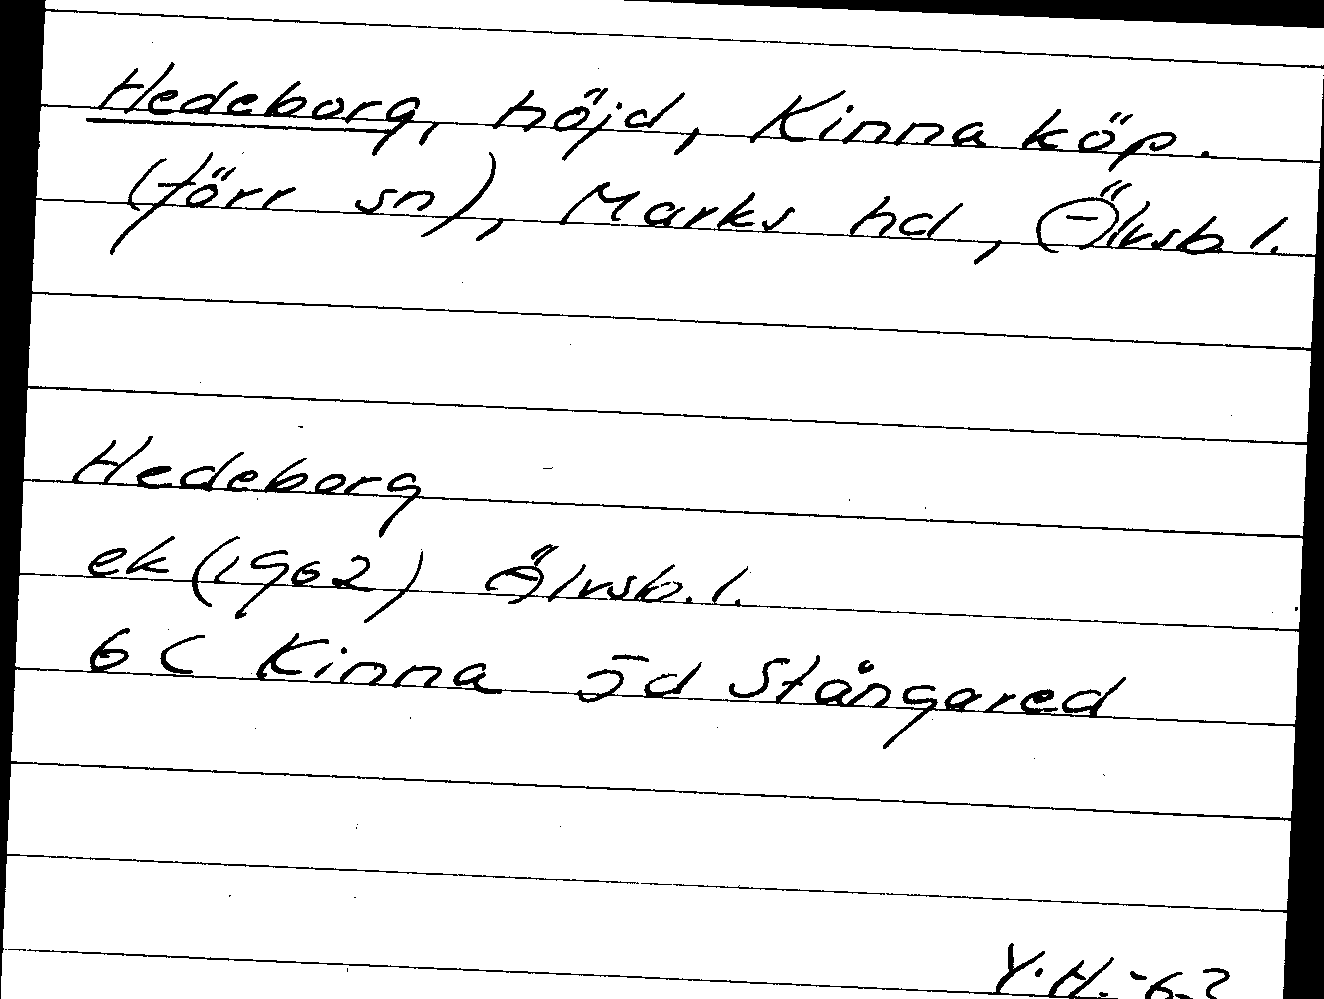 Hedeborg, höjd, Kinna köp.
(förr sn), Marks hd, Älvsb. l.
Hedeborg
ek (1962) Älvsb. l.
6 C Kinna 5d Stångared
Y. H. -63